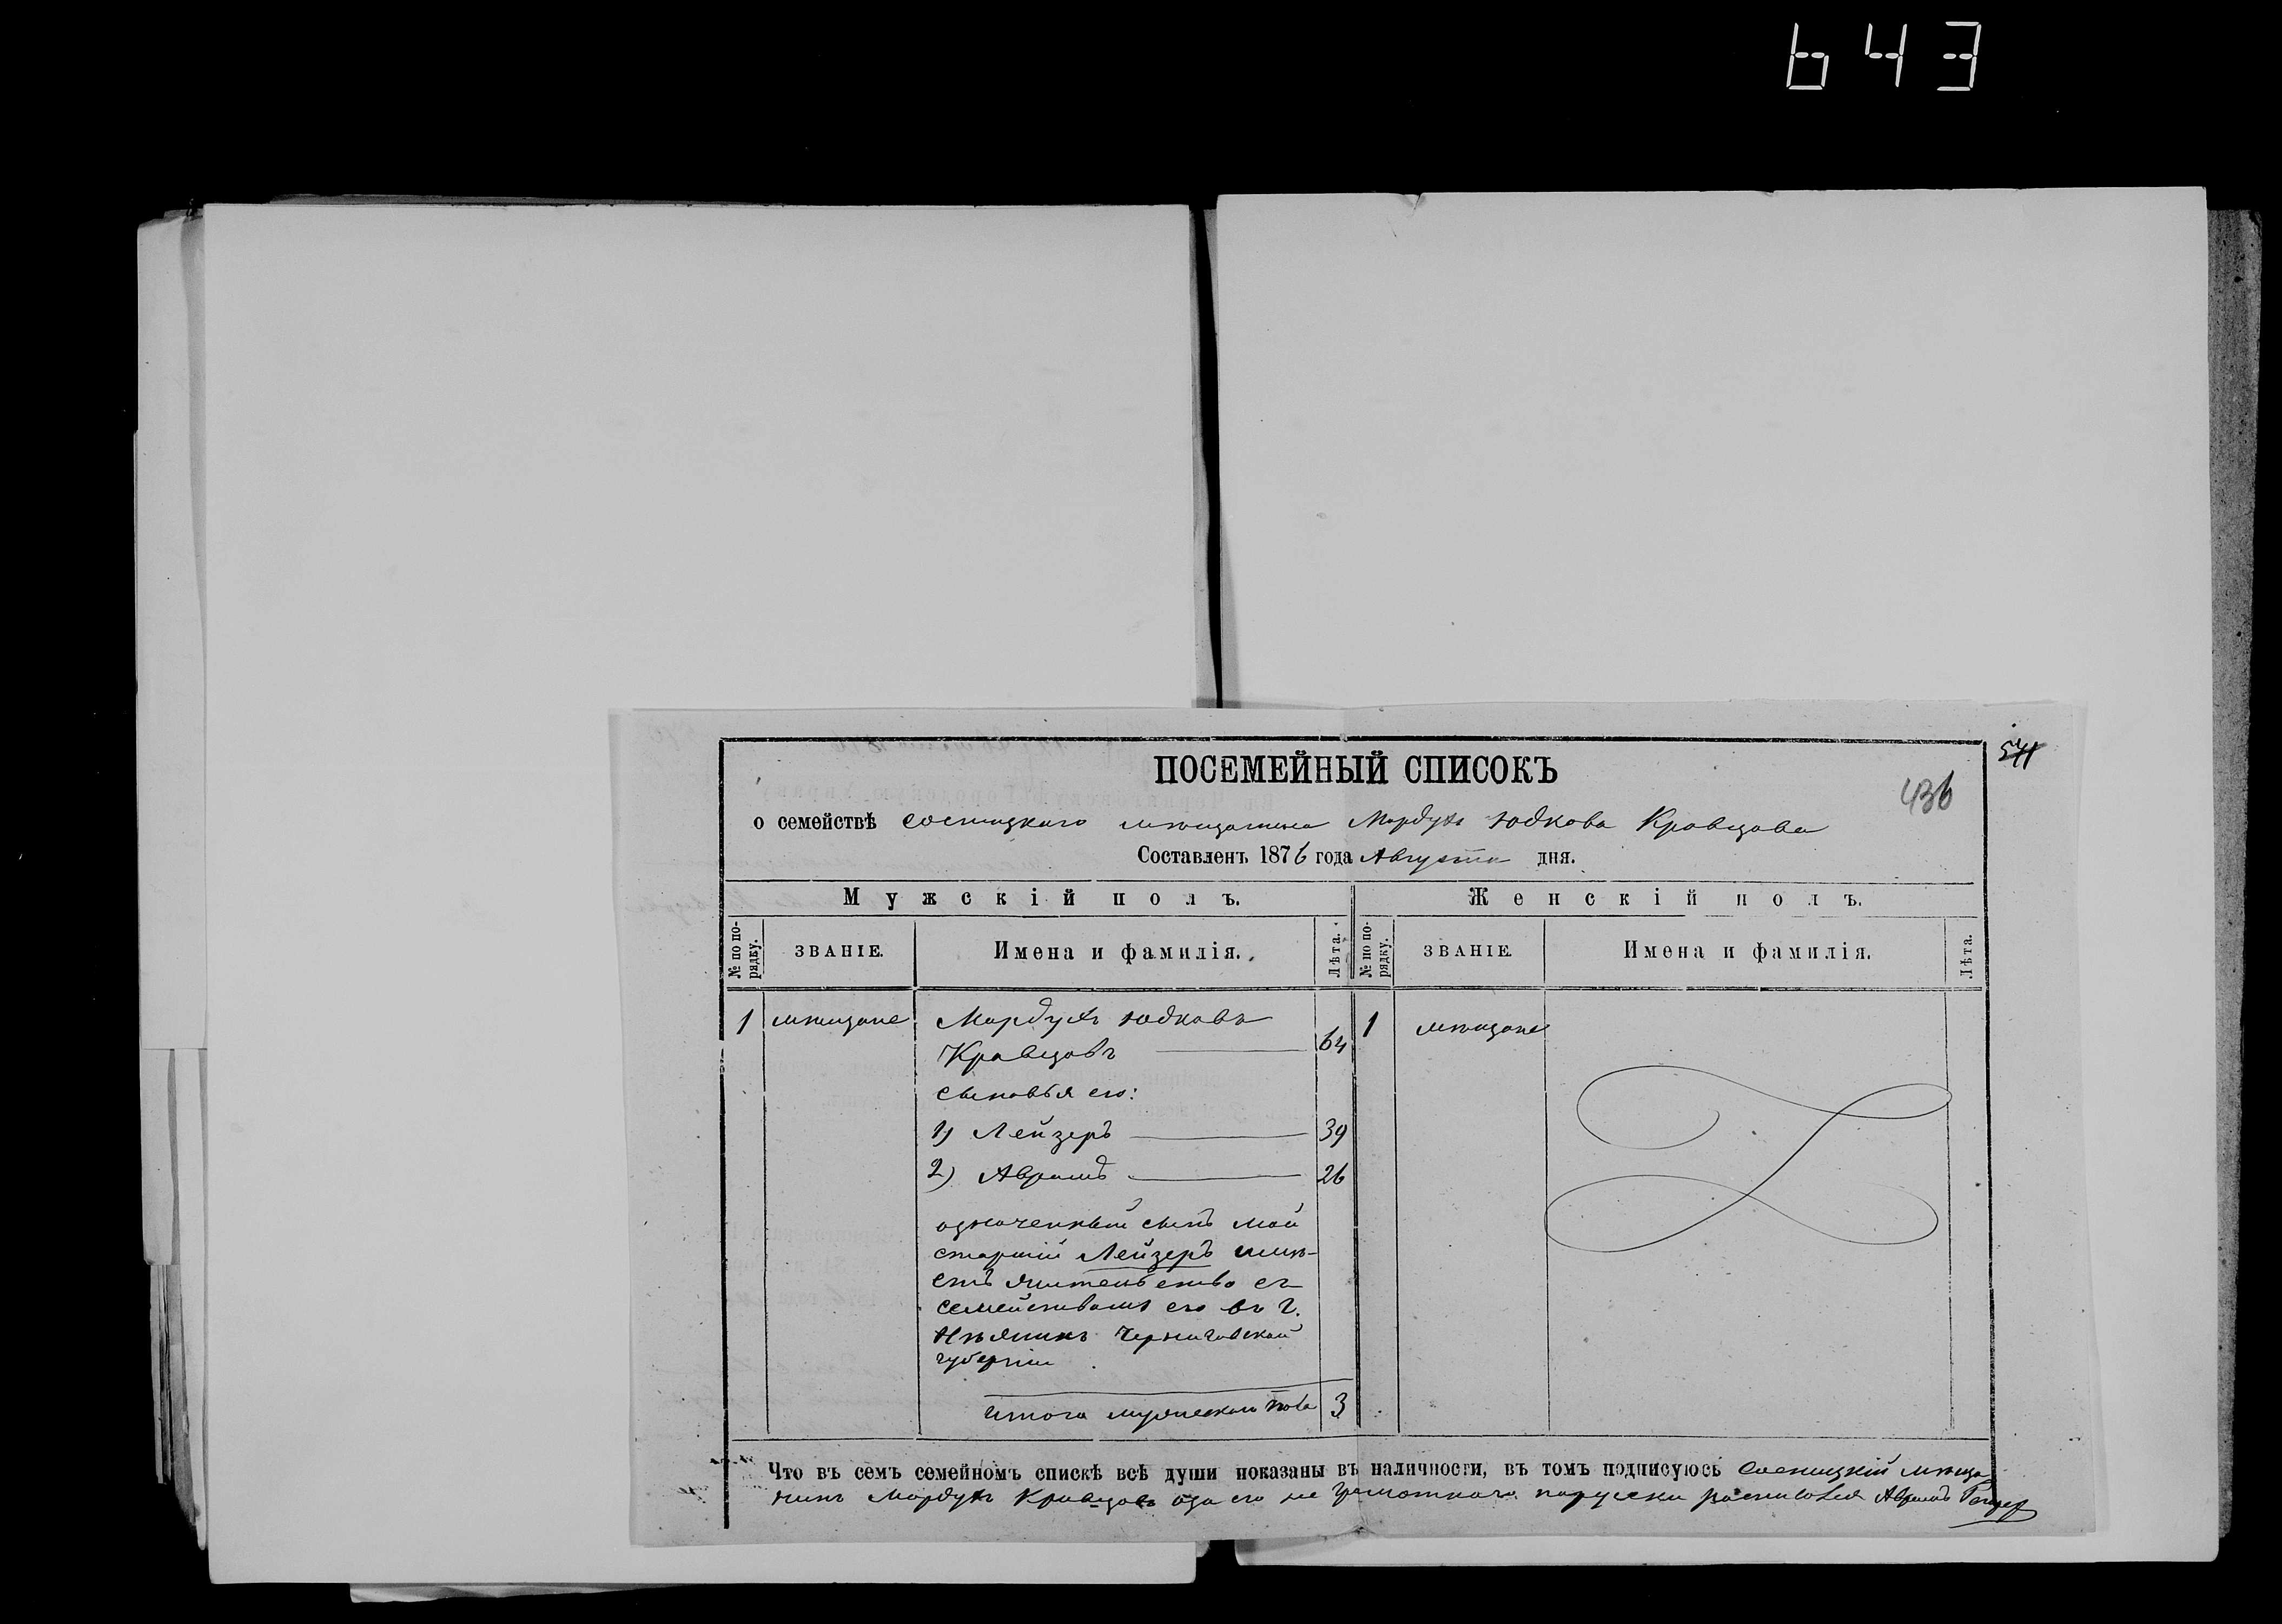 643
ПОСЕМЕЙНЫЙ СПИСОКЪ
541
436
о семействѣ сосницкаго мѣщанина Мордуха Юдкова Кравцова
Составленъ 1876 года Августа дня.
Мужскій полъ.
Женскій полъ.
№ по по-рядку.
ЗВАНІЕ.
Имена и фамилія.
Лѣта.
№ по по-рядку.
ЗВАНІЕ.
Имена и фамилія.
Лѣта.
1 мѣщане Мордухъ Юдковъ
Кравцовъ 64
1 мѣщане
сыновья его:
1) Лейзеръ 39
2) Аврамъ 26
означенный сынъ мой
старшій Лейзеръ имѣ-
етъ жительство съ
семействомъ его въ г.
Нѣжинѣ Черниговской
губерніи
Итого мужескаго пола 3
Что въ семъ семейномъ спискѣ всѣ души показаны въ наличности, въ томъ подписуюсь Сосницкій мѣща
нинъ Мордухъ Кравцовъ а за его не грамотнаго роспысался Аврамъ